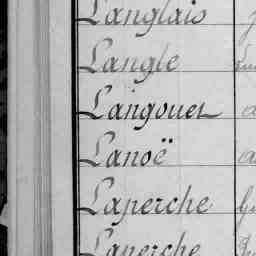 Langlais
Langle
Langouet
Lanoë
Laperche
Laperche